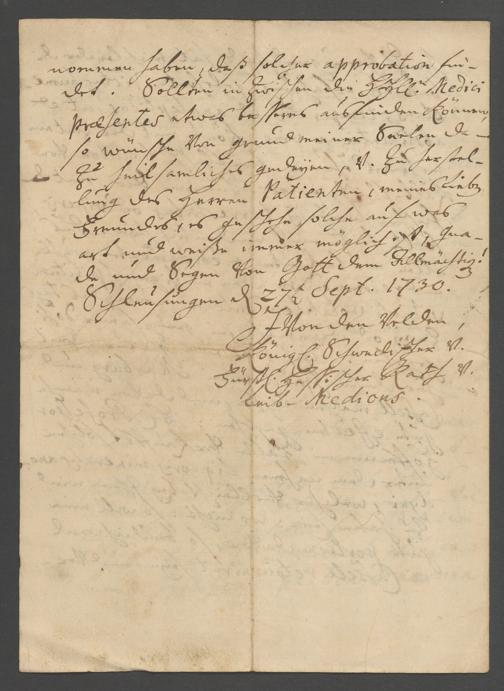 nommen haben, daß solcher approbation fin-
det. Sollten inzwischen die Medici
præsentes etwas besseres ausfinden können,
so wünsche von grund meiner Seelen da-
zu heilsamliches gedeyen, v. zu herstel-
lung des Herren Patienten, meines lieben
Freundes, es geschehe solche auf was
art und weise immer möglich, v. Gna-
de und Segen von Gott dem Allmächtig!
Schleusingen d 27t Sept. 1730.
J Von den Velden,
Königl. Schwedischer v.
Fürstl. Hessischer Rath v.
leib-Medicus.